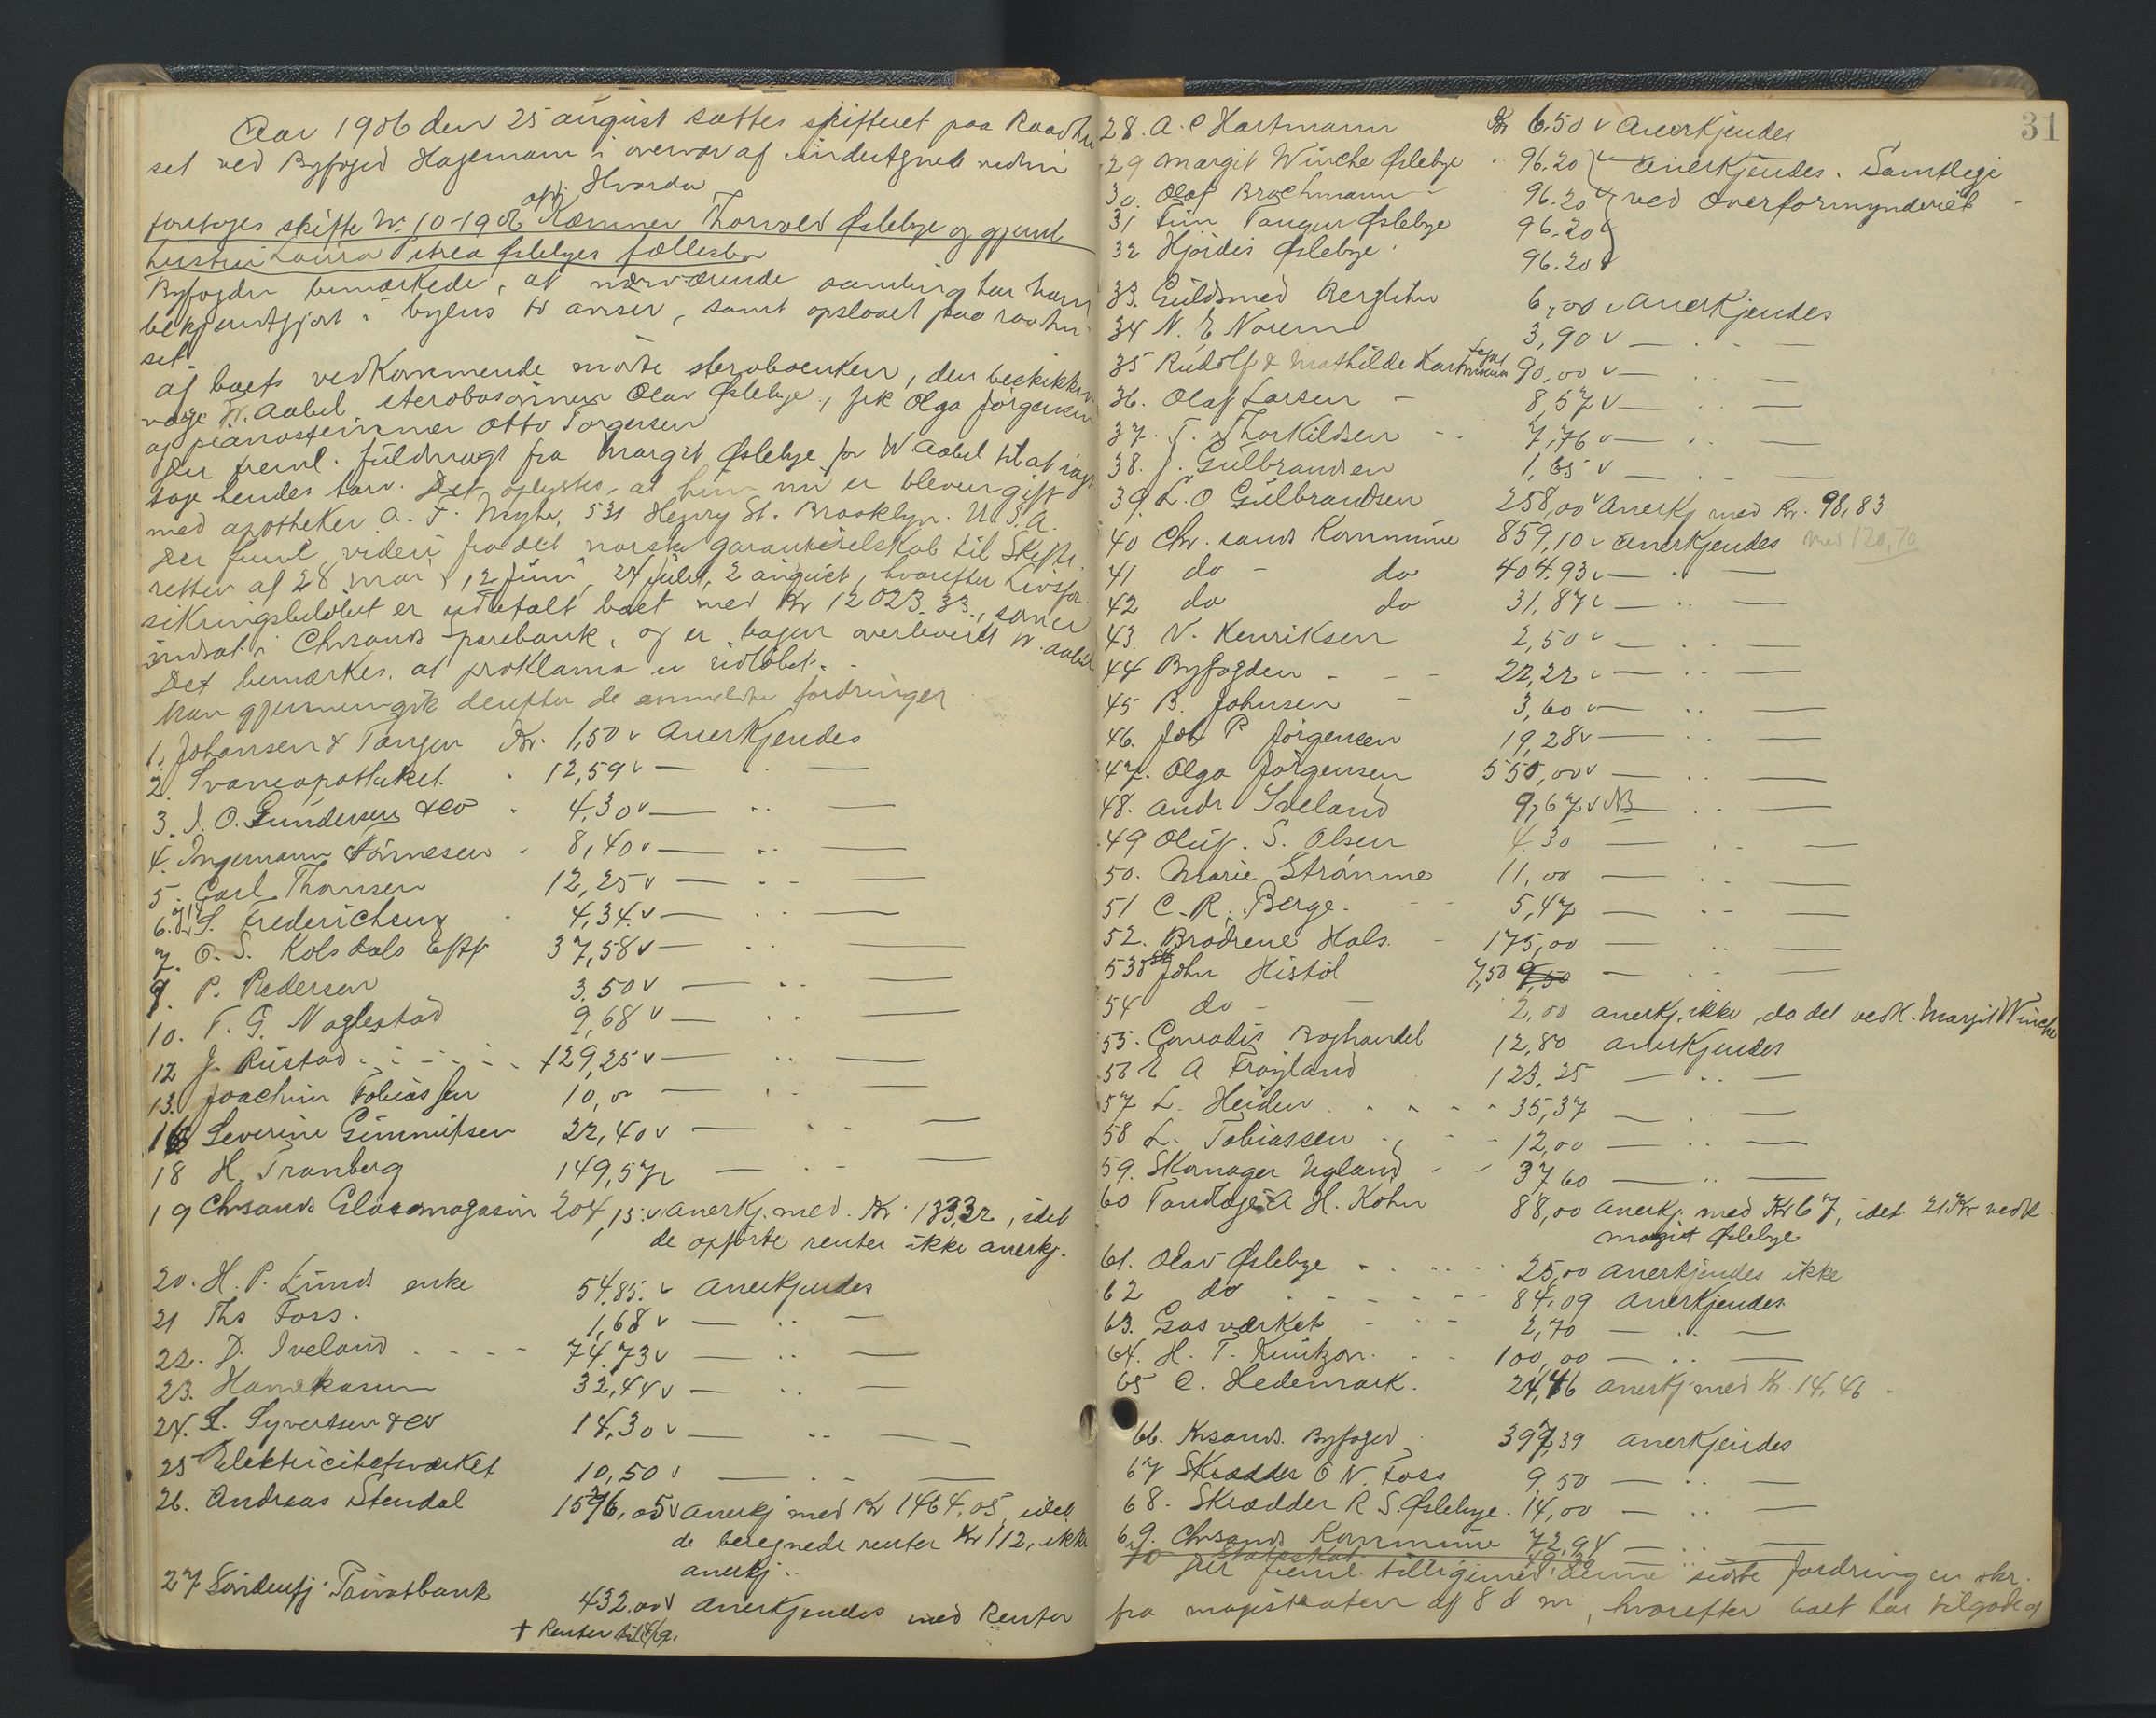 Aar 1906 den 25 august sattes skifteret paa Raadhu
set ved Byfoged Hagemann i overvær af undertegnede vidner
Hvorda
foretoges skifte No 10-1906 afd. Kæmner Thorvald Øslebye og gjenl.
hustru Laura Petrea Øslebyes fællesbo
Byfogden bemærkede, at nærværende samling har han
bekjendtgjort i byens to aviser, samt opslaaet paa raadhu-
set.
af boets vedkommende mødte sterboenken, den beskikkede
værge W. Aabel sterbosønnen Olav Øslebye, frk Olga Jørgensen
og pianostemmer Otto Torgersen
Der freml. fuldmagt fra Margit Øslebye for W Aabel til at iagt
tage hendes tarv. Det oplystes, at hun nu er bleven gift
med apotheker A. T. Myhe, 531 Henry St. Brooklyn. U.S.A.
Der freml videre fra det norske garantiselskab til Skifte-
retten af 28 mai, 12 juni, 24 juli, 2 august, hvorefter livsfor
sikringsbeløbet er udbetalt boet med Kr 12023.33, som er
indsat i Chrsands Sparebank, og er bogen overleveret W. Aabel
Det bemærkes, at proklama er udløbet.
Man gjennemgik derefter de anmeldte fordringer
1. Johansen & Tangen Kr. 1,50 v Anerkjendes
2. Svaneapotheket. 12,59 v — .. —
3. J. O. Gundersen & Co 4,30 v — .. —
4. Ingemann Tørnesen 8,40 v — .. —
5. Carl Thomsen 12,25 v — .. —
6. og 11 S. Frederichsen 4,34 v — .. —
7. O. S. Kolsdals Eftf 37,58 v — .. —
9. P. Pedersen 3,50 v — .. —
10. T. G. Naglestad 9,68 v — .. —
12 J. Rustad 129,25 v — .. —
13. Joachim Tobiassen 10,00 — .. —
16 Severine Gunnufsen 22,40 v — .. —
18 H. Tranberg 149,57 — .. —
19 Chrsands Glasmagasin 204,15 v anerkj. med Kr. 133,32, idet
de opførte renter ikke anerkj.
20. H. P. Lunds enke 54,85. v Anerkjendes
21 Ths Foss. 1,68 v — .. —
22. D. Iveland 74,73 v — .. —
23. Havnekassen 32,44 v — .. —
24. S. Syvertsen & Co 14,30 v — .. —
25 Elektricitetsværket 10,50 v — .. —
26. Andreas Stendal 1576,05 v anerkj med Kr 1464,05, idet
de beregnede renter Kr 112, ikke
anerkj..
27 Søndenfj Privatbank 432.00 v Anerkjendes med Renter
+ Renter til
31
28. A. C Hartmann Kr 6,50 v Anerkjendes
29 Margit Winche Øslebye 96.20 v Anerkjendes. Samtlige
30. Olaf Brochmann 96.20 v ved Overformynderiet
31 Finn Tangen Øslebye 96.20 v
32 Hjørdis Øslebye 96.20 v
33. Guldsmed Berglihn 6,00 v Anerkjendes
34 N. E Noreen 3,90 v — .. —
35 Rudolf & Mathilde Hartmann legat 90,00 v — .. —
36. Olaf Larsen 8,57 v — .. —
37. T. Thorkildsen 7,76 v — .. —
38. J. Gulbrandsen 1,65 v — .. —
39. L. O Gulbrandsen 258,00 v Anerkj med Kr. 98,83
40 Chr. sands Kommune 859,10 v Anerkjendes med 120,70
41 do - do 404.93 v — .. —
42 do do 31,87 v — .. —
43. N. Henriksen 2,50 v — .. —
44 Byfogden 22,22 v — .. —
45 B. Johnsen 3,60 v — .. —
46. Joh P Jörgensen 19,28 v — .. —
47. Olga Jörgensen 550,00 v — .. —
48. Andr Iveland 9,67 v NB — .. —
49 Oluf. S. Olsen 4.30 — .. —
50. Marie Strømme 11,00 — .. —
51 C. R. Berge. 5,47 — .. —
52. Brødrene Hals. 175,00 — .. —
53 John Histöl 7,50 9,50 — .. —
54 do - 2,00 anerkj. ikke, da det vedk. Margit Winche
55. Conradis Boghandel 12,80 anerkjendes
56 E A Frøyland 123,25 — .. —
57 L. Heiden 35,37 — .. —
58 L. Tobiassen 12,00 — .. —
59. Skomager Ugland 37,60 — .. —
60 Tandlæge A H. Kohn 88,00 anerkj. med Kr 67, idet 21 Kr vedk.
Margit Øslebye
61. Olav Øslebye 25,00 Anerkjendes ikke
62 do 84,09 Anerkjendes.
63. Gasværket 2,70 — .. —
64. H. T. Knutzon. 100,00 — .. —
65 C. Hedemark. 24,46 anerkj med Kr. 14,46
66. Krsands Byfoged 397,39 anerkjendes
67 Skrædder O N. Foss 9,50 — .. —
68. Skrædder R S. Øslebye. 14,00 — .. —
69. Chrsands Kommune 72,94 — .. —
70 Statsskat 49,30
Der freml. tilligemed denne sidste fordring en skr.
fra magistraten af 8 d m, hvorefter boet har tilgode af